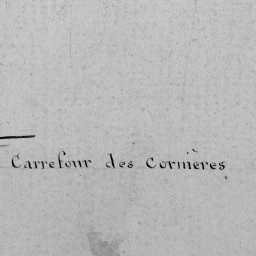 Carrefour des Cornières